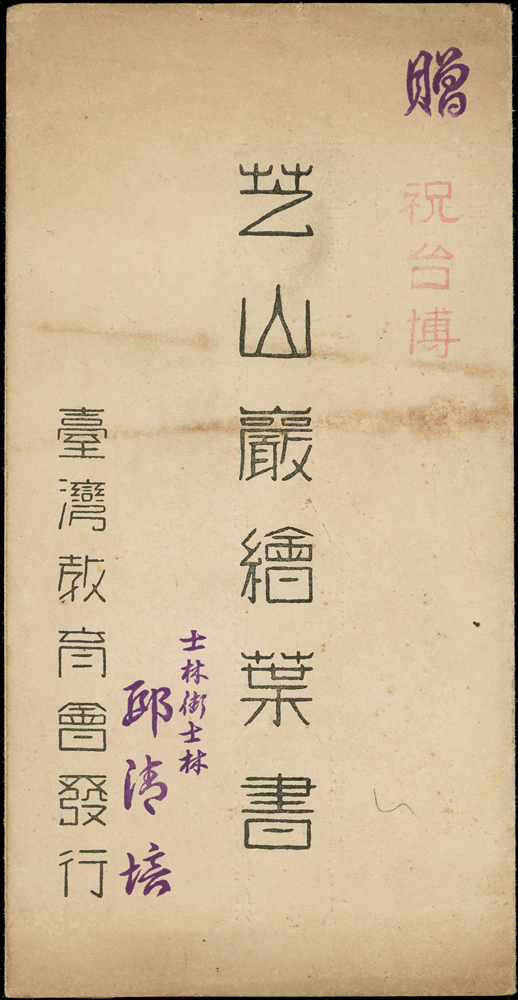 贈
祝台博
芝山巖繪葉書
士林街士林
邱清培
臺灣教育會發行